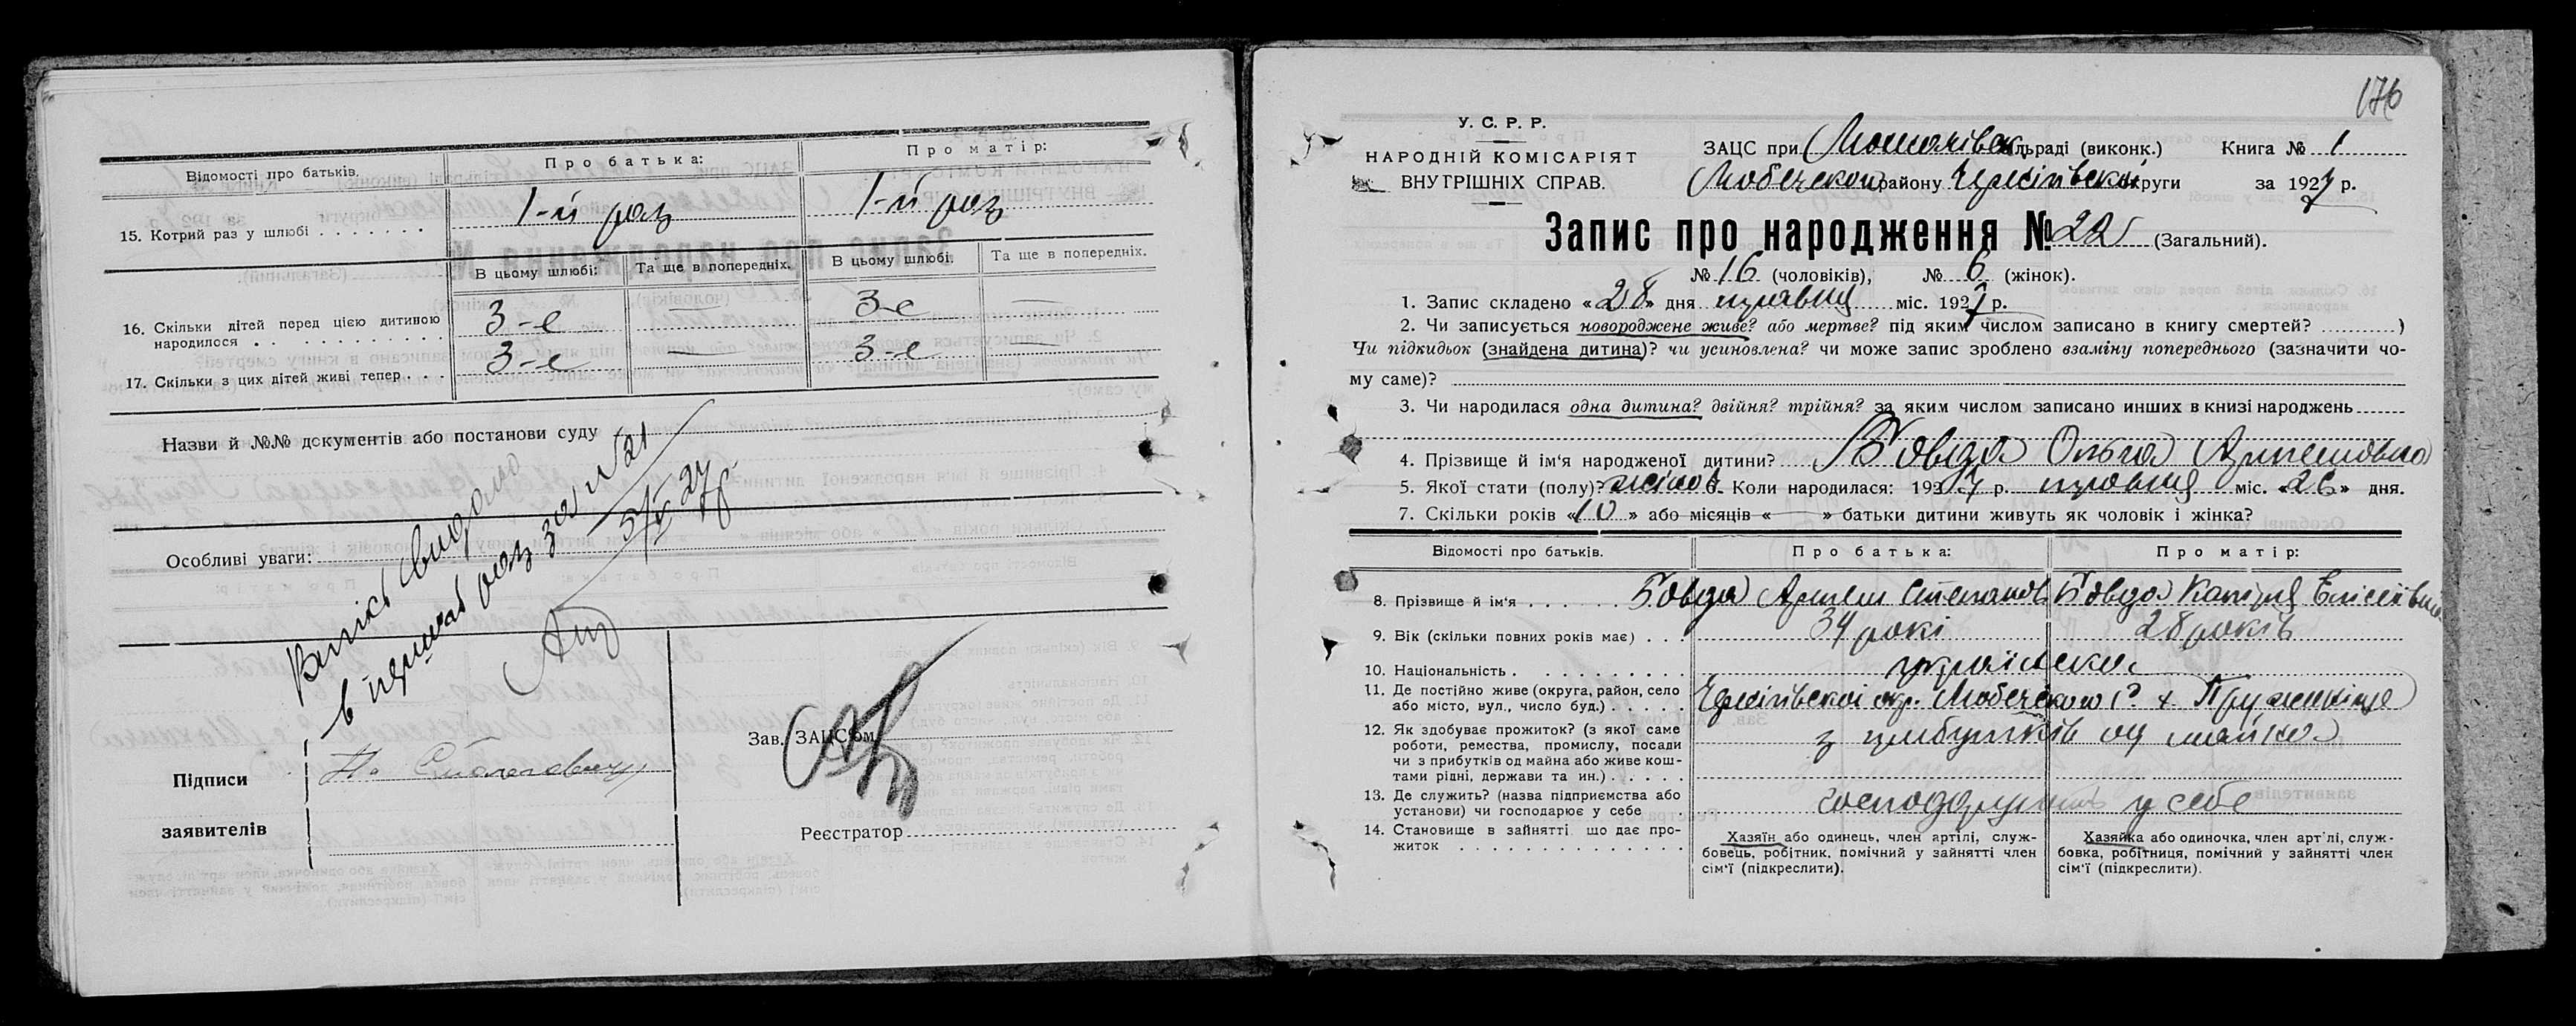 Відомості про батьків.
Про батька:
Про матір:
15. Котрий раз у шлюбі
1-й раз
1-й раз
В цьому шлюбі:
Та ще в попередніх.
В цьому шлюбі.
Та ще в попередніх.
16. Скільки дітей перед цією дитиною
народилося
3-е
—
3-е
—
17. Скільки з цих дітей живі тепер
3-е
—
3-е
—
Назви й №№ документів або постанови суду
Особливі уваги:
Витяг видано
в перший раз за №21
Підписи
заявителів
Зав. ЗАЦСом
Реєстратор
176
У. С. Р. Р.
НАРОДНІЙ КОМІСАРІЯТ
ВНУТРІШНІХ СПРАВ.
ЗАЦС при сільраді (виконк.) Книга № 1
району округи за 1927 р.
Запис про народження № 22 (Загальний).
№ 16 (чоловіків), № 6 (жінок).
1. Запис складено «28» дня травня міс. 1927 р.
2. Чи записується новороджене живе? або мертве? під яким числом записано в книгу смертей? )
Чи підкидьок (знайдена дитина)? чи усиновлена? чи може запис зроблено взаміну попереднього (зазначити чо-
му саме)?
3. Чи народилася одна дитина? двійня? трійня? за яким числом записано инших в книзі народжень
4. Прізвище й ім'я народженої дитини? Бовда Ольга
5. Якої стати (полу)? жіноч. 6. Коли народилася: 1927 р. травня міс. «26» дня.
7. Скільки років «10» або місяців «—» батьки дитини живуть як чоловік і жінка?
Відомості про батьків.
Про батька:
Про матір:
8. Прізвище й ім'я
Бовда Степанов
Бовда
9. Вік (скільки повних років має)
34 рокі
28 років
10. Національність
українська
11. Де постійно живе (округа, район, село
або місто, вул., число буд.)
12. Як здобуває прожиток? (з якої саме
роботи, ремества, промислу, посади
чи з прибутків од майна або живе кош-
тами рідні, держави та ин.)
з прибутків од майна
13. Де служить? (назва підприємства або
установи) чи господарює у себе
у себе
14. Становище в зайнятті що дає про-
житок
Хазяїн або одинець, член артілі, служ-
бовець, робітник, помічний у зайнятті член
сім'ї (підкреслити).
Хазяйка або одиночка, член арт'лі, служ-
бовка, робітниця, помічний у зайнятті член
сім'ї (підкреслити).